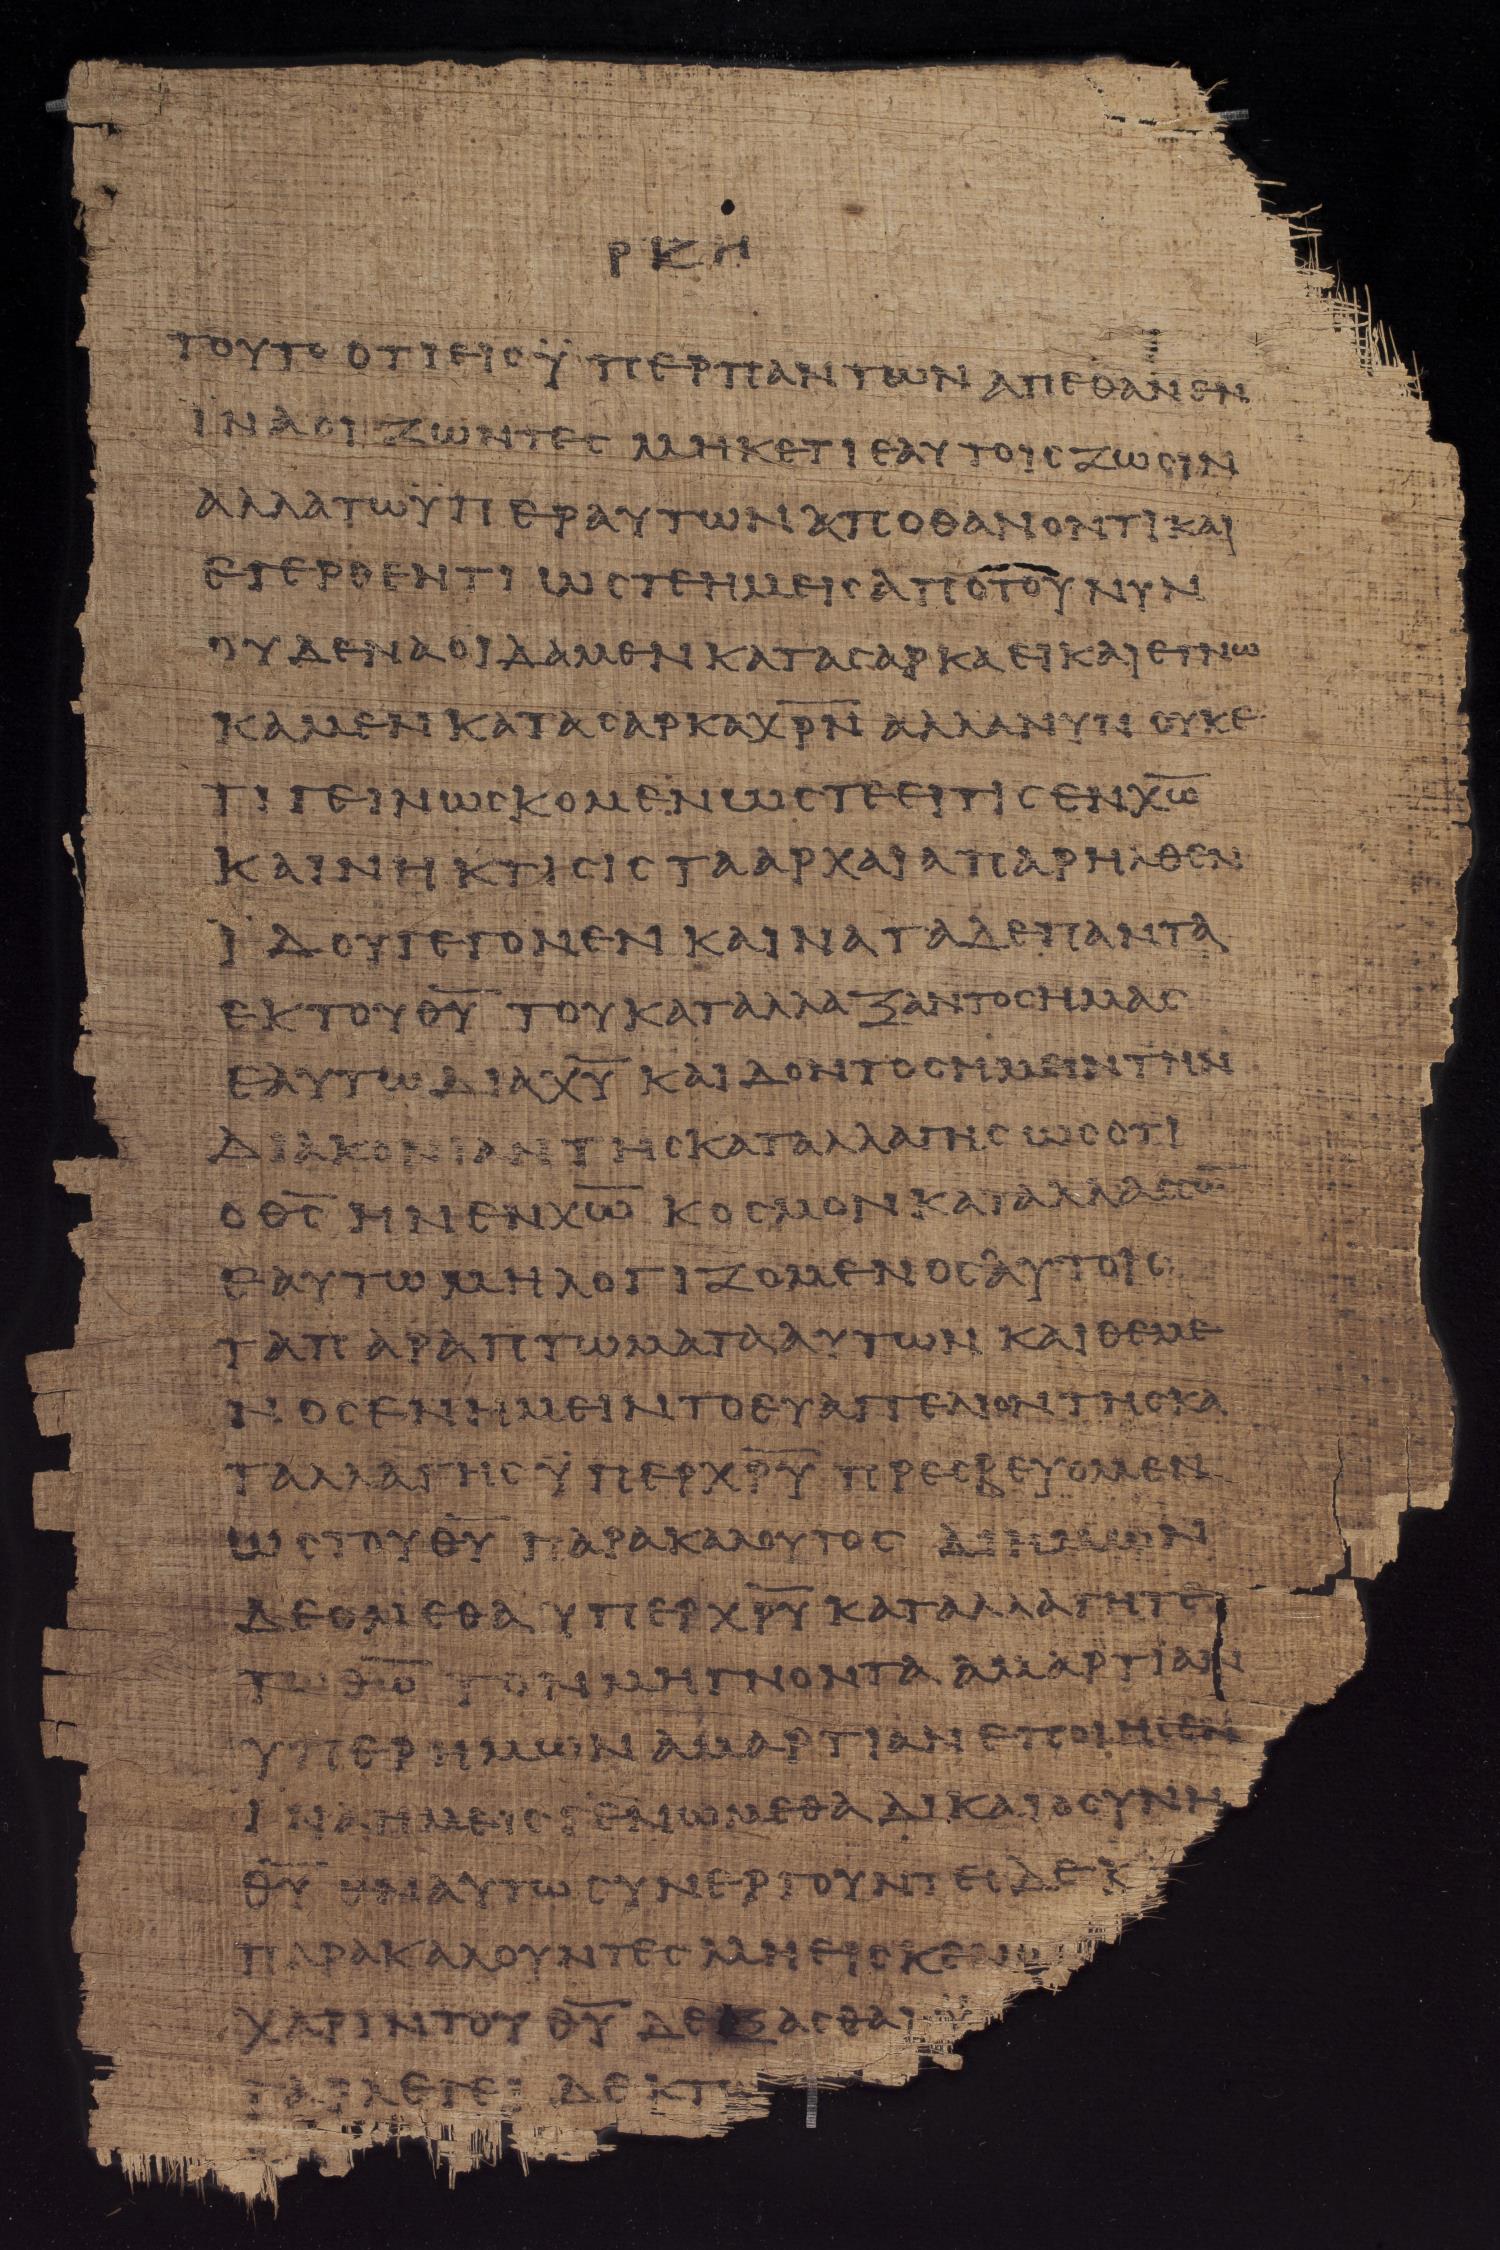 ΡΚΗ
ΤΟΥΤΟ ΟΤΙ ΕΙΣ ΫΠΕΡ ΠΑΝΤΩΝ ΑΠΕΘΑΝΕΝ
ΙΝΑ ΟΙ ΖΩΝΤΕΣ ΜΗΚΕΤΙ ΕΑΥΤΟΙΣ ΖΩΣΙΝ
ΑΛΛΑ ΤΩ ΫΠΕΡ ΑΥΤΩΝ ΑΠΟΘΑΝΟΝΤΙ ΚΑΙ
ΕΓΕΡΘΕΝΤΙ ΩΣΤΕ ΗΜΕΙΣ ΑΠΟ ΤΟΥ ΝΥΝ
ΟΥΔΕΝΑ ΟΙΔΑΜΕΝ ΚΑΤΑ ΣΑΡΚΑ ΕΙ ΚΑΙ ΕΓΝΩ
ΚΑΜΕΝ ΚΑΤΑ ΣΑΡΚΑ Χ̅Ρ̅Ν̅ ΑΛΛΑ ΝΥΝ ΟΥΚΕ
ΤΙ ΓΕΙΝΩΣΚΟΜΕΝ ΩΣΤΕ ΕΙ ΤΙΣ ΕΝ Χ̅Ω̅
ΚΑΙΝΗ ΚΤΙΣΙΣ ΤΑ ΑΡΧΑΙΑ ΠΑΡΗΛΘΕΝ
ΪΔΟΥ ΓΕΓΟΝΕΝ ΚΑΙΝΑ ΤΑ ΔΕ ΠΑΝΤΑ
ΕΚ ΤΟΥ Θ̅Υ̅ ΤΟΥ ΚΑΤΑΛΛΑΞΑΝΤΟΣ ΗΜΑΣ
ΕΑΥΤΩ ΔΙΑ Χ̅Υ̅ ΚΑΙ ΔΟΝΤΟΣ ΗΜΕΙΝ ΤΗΝ
ΔΙΑΚΟΝΙΑΝ ΤΗΣ ΚΑΤΑΛΛΑΓΗΣ ΩΣ ΟΤΙ
Ο Θ̅Σ̅ ΗΝ ΕΝ Χ̅Ω̅ ΚΟΣΜΟΝ
ΕΑΥΤΩ ΜΗ ΛΟΓΙΖΟΜΕΝΟΣ ΑΥΤΟΙΣ
ΤΑ ΠΑΡΑΠΤΩΜΑΤΑ ΑΥΤΩΝ ΚΑΙ ΘΕΜΕ
ΝΟΣ ΕΝ ΗΜΕΙΝ ΤΟ ΕΥΑΓΓΕΛΙΟΝ ΤΗΣ ΚΑ
ΤΑΛΛΑΓΗΣ ΫΠΕΡ Χ̅Ρ̅Υ̅ ΠΡΕΣΒΕΥΟΜΕΝ
ΩΣ ΤΟΥ Θ̅Υ̅ ΠΑΡΑΚΑΛΟΥΤΟΣ ΔΙ ΗΜΩΝ
ΔΕΟΜΕΘΑ ΥΠΕΡ Χ̅Ρ̅Υ̅ ΚΑΤΑΛΛΑΓΗΤΕ
ΤΩ Θ̅Ω̅ ΤΟΝ ΜΗ ΓΝΟΝΤΑ ΑΜΑΡΤΙΑΝ
ΥΠΕΡ ΗΜΩΝ ΑΜΑΡΤΙΑΝ ΕΠΟΙΗΣΕΝ
ΙΝΑ ΗΜΕΙΣ ΓΕΝΩΜΕΘΑ ΔΙΚΑΙΟΣΥΝΗ
Θ̅Υ̅ ΕΝ ΑΥΤΩ ΣΥΝΕΡΓΟΥΝΤΕΙ ΔΕ Κ
ΠΑΡΑΚΑΛΟΥΝΤΕΣ ΜΗ ΕΙΣ ΚΕΝΟ
ΧΑΡΙΝ ΤΟΥ Θ̅Υ̅ ΔΕΞΑΣΘΑΙ Υ
ΓΑΡ ΛΕΓΕΙ ΔΕΚΤΩ